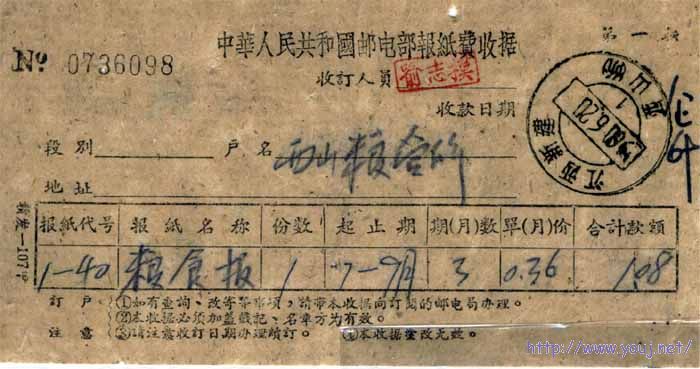 中華人民共和國邮电部報紙費收据
№ 0736098
收訂人員 喻志撲
收款日期
江西新建 1960.6.20 1 西山
段别 户名 西山粮合所
地址
报紙代号 报紙名称 份数 起止期 期(月)数 單(月)价 合计款額
1-40 粮食报 1 7-9月 3 0.36 1.08
訂户 ①如有查詢、改寄等事項，請带本收据向訂閱的邮电局办理。
②本收据必须加盖戳記、名章方为有效。
注意 ③請注意收訂日期办理續訂。 ④本收据塗改无效。
http://www.youj.net/